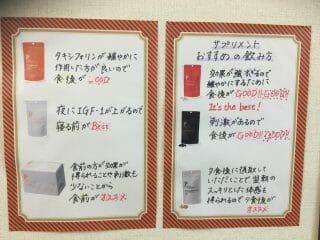 タキシフォリンが緩やかに
作用した方が良いので
食後がGOOD
夜にIGF-1が上がるので
寝る前がBest
食前の方が効果が
得られることや刺激も
少ないことから
食前がオススメ
サプリメント
おすすめの飲み方
効果が強すぎるので
緩やかにするために
食後がGOOD!!
It's the best!
刺激があるので
食後がGOOD!!
夕食後に摂取して
いただくことで翌朝の
スッキリとした体感を
得られるので夕食後が
オススメ